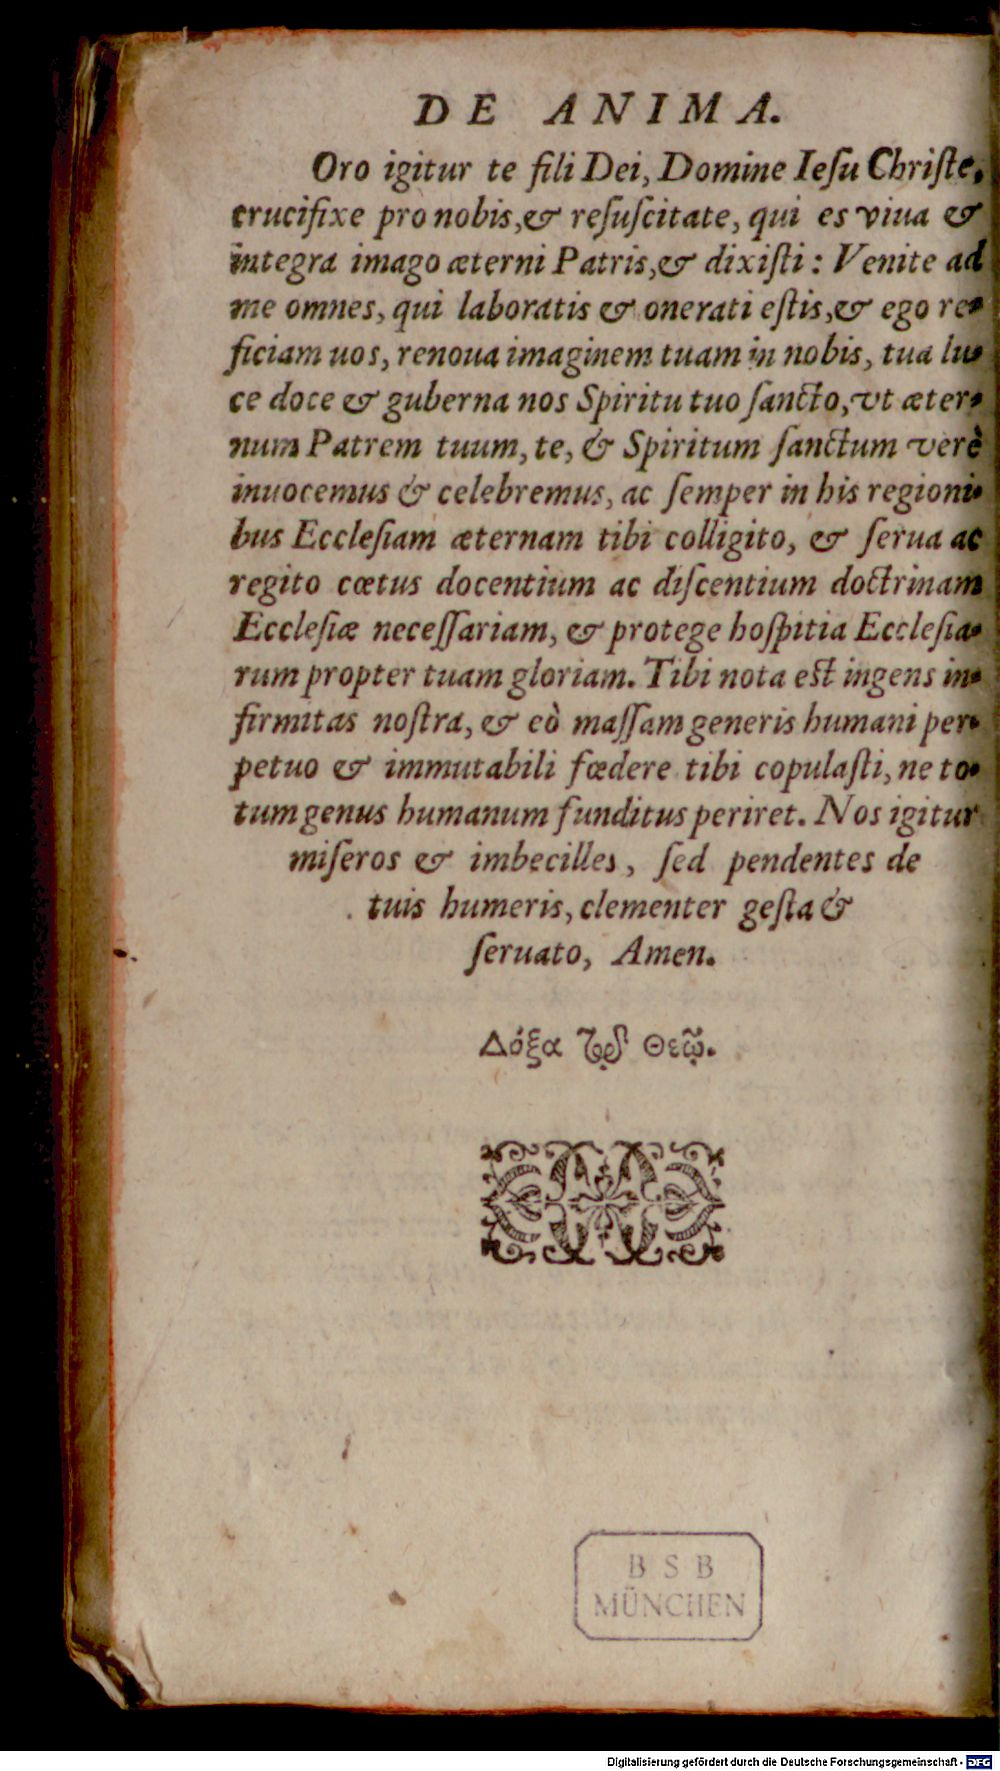 DE ANIMA.
Oro igitur te fili Dei, Domine Ieſu Chriſte,
crucifixe pro nobis, & reſuſcitate, qui es viua &
integra imago æterni Patris, & dixiſti: Venite ad
me omnes, qui laboratis & onerati eſtis, & ego re-
ficiam uos, renoua imaginem tuam in nobis, tua lu-
ce doce & guberna nos Spiritu tuo ſancto, vt æter-
num Patrem tuum, te, & Spiritum ſanctum verè
inuocemus & celebremus, ac ſemper in his regioni-
bus Eccleſiam æternam tibi colligito, & ſerua ac
regito cœtus docentium ac diſcentium doctrinam
Eccleſiæ neceſſariam, & protege hoſpitia Eccleſia-
rum propter tuam gloriam. Tibi nota eſt ingens in-
firmitas noſtra, & eò maſſam generis humani per-
petuo & immutabili fœdere tibi copulaſti, ne to-
tum genus humanum funditus periret. Nos igitur
miſeros & imbecilles, ſed pendentes de
tuis humeris, clementer geſta &
ſeruato, Amen.
Δόξα τῷ Θεῷ.
BSB
MÜNCHEN
Digitalisierung gefördert durch die Deutsche Forschungsgemeinschaft - DFG